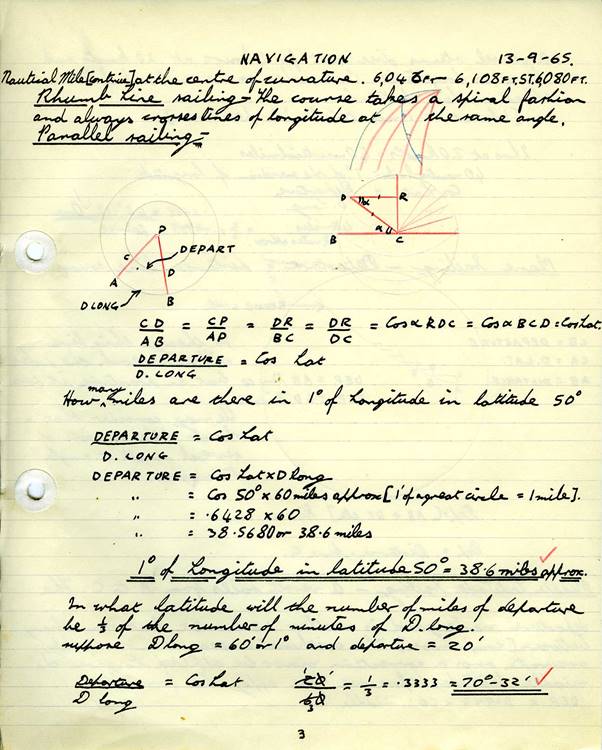 NAVIGATION 13-9-65.
Nautical Mile [continue] at the centre of curvature. 6,046FT - 6,108FT, ST, 6080FT.
Rhumb Line sailing - The course takes a spiral fashion
and always crosses lines of longitude at the same angle.
Parallel sailing -
D R
α
B α C
P
C DEPART
A D
D LONG B
CD/AB = CP/AP = DR/BC = DR/DC = Cos α RDC = Cos α BCD = Cos Lat.
DEPARTURE/D. LONG = Cos Lat
How many miles are there in 1° of Longitude in latitude 50°
DEPARTURE/D. LONG = Cos Lat
DEPARTURE = Cos Lat x D long
" = Cos 50° x 60 miles approx [1' of a great circle = 1 mile].
" = .6428 x 60
" = 38.5680 or 38.6 miles
1° of Longitude in latitude 50° = 38.6 miles approx.
In what latitude will the number of miles of departure
be 1/3 of the number of minutes of D. long.
suppose D long = 60' or 1° and departure = 20'
Departure/D long = Cos Lat 20/60 = 1/3 = .3333 = 70° - 32'
3